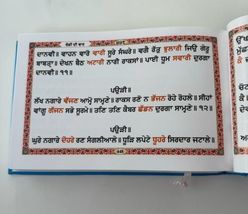 ਚੰਡੀ ਦੀ ਵਾਰ
ਦਾਨਵੀ ॥ ਵਾਹਨ ਵਾਰੇ ਵਾਰੀ ਸੂਰੇ ਸੰਘਰੇ ॥ ਵਗੈ ਰੱਤੁ ਝੁਲਾਰੀ ਜਿਉ ਗੇਰੂ
ਬਾਬਤ੍ਰਾ ॥ ਦੇਖਨ ਬੈਠ ਅਟਾਰੀ ਨਾਰੀ ਰਾਕਸਾਂ ॥ ਪਾਈ ਧੂਮ ਸਵਾਰੀ ਦੁਰਗਾ
ਦਾਨਵੀ ॥੧੧॥
ਪਉੜੀ ॥
ਲੱਖ ਨਗਾਰੇ ਵੱਜਣ ਆਮੁ ਸਾਮ੍ਹਣੇ ॥ ਰਾਕਸ ਰਣੋ ਨ ਭੱਜਨ ਰੋਹੇ ਰੋਹਲੇ ॥ ਸੀਹਾਂ
ਵਾਂਗੂ ਗੱਜਨ ਸਭੇ ਸੂਰਮੇ ॥ ਤਣਿ ਤਣਿ ਕੈਬਰ ਛੱਡਨ ਦੁਰਗਾ ਸਾਮ੍ਹਣੇ ॥੧੨॥
ਪਉੜੀ ॥
ਘੁਰੇ ਨਗਾਰੇ ਦੋਹਰੇ ਰਣ ਸੰਗਲੀਆਲੇ ॥ ਧੂੜਿ ਲਪੇਟੇ ਧੂਹਰੇ ਸਿਰਦਾਰ ਜਟਾਲੇ ॥